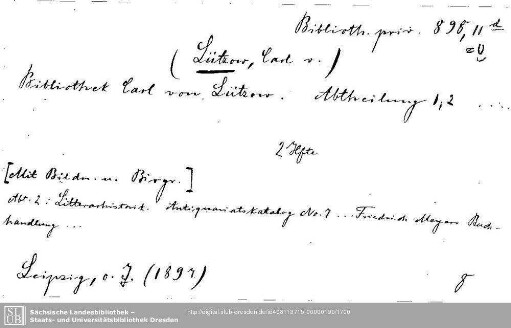 Biblioth. priv. 898, 11 d
= U
(Lützow, Carl v.)
Bibliothek Carl von Lützow. Abtheilung 1, 2 ....
2 Hfte
[Mit Bildn. u. Biogr.]
Abt. 2: Litterarhistorik. Antiquariatskatalog No. 7 ... Friedrich Meyers Buch-
handlung ...
Leipzig, o. J. (1897)
8
Sächsische Landesbibliothek –
Staats- und Universitätsbibliothek Dresden
SLUB